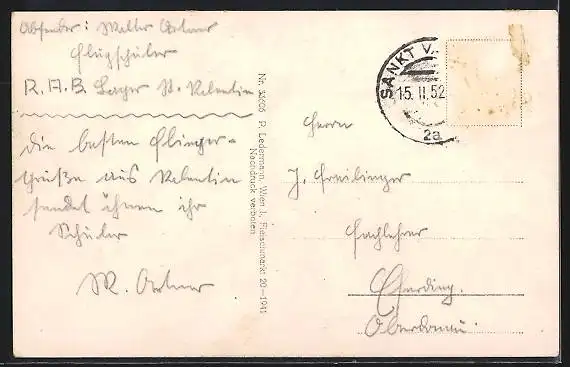 Absender: Walter Ortner
Flugschüler
R.A.B. Lager St. Valentin
die besten Flieger-
grüße aus Valentin
sendet ihnen ihr
Schüler
W. Ortner
Nr. 33606 P. Ledermann, Wien I., Fleischmarkt 20—1941
Nachdruck verboten
SANKT V
15. II. 52
2a
Herrn
J. Freilinger
Fachlehrer
Eferding.
Oberdonau.